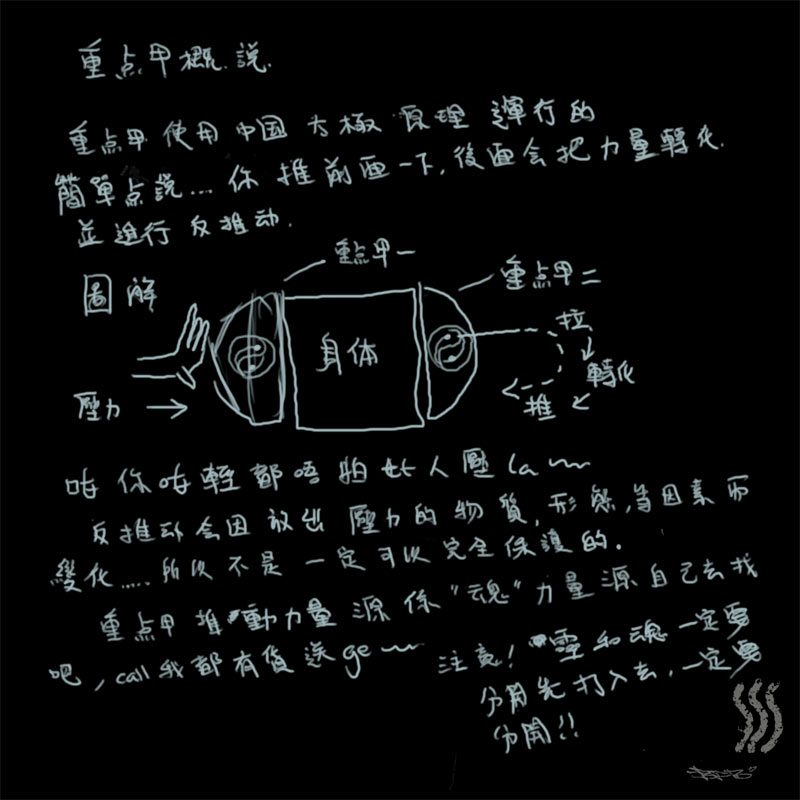 重点甲概説.
重点甲使用中国太極原理運行的
簡單点説.... 你推前面一下, 後面会把力量轉化
並進行反推动.
重点甲一
重点甲二
圖解
身体
拉
轉化
推
壓力
咁你咁輕都唔怕比人壓 la
反推动会因放出壓力的物質, 形態, 等因素而
變化..... 所以不是一定可以完全保護的.
重点甲推動力量源係"魂"力量源自己去找
吧, call 我都有貨送 ge
注意! 靈和魂一定要
分開先打入去, 一定要
分開!!